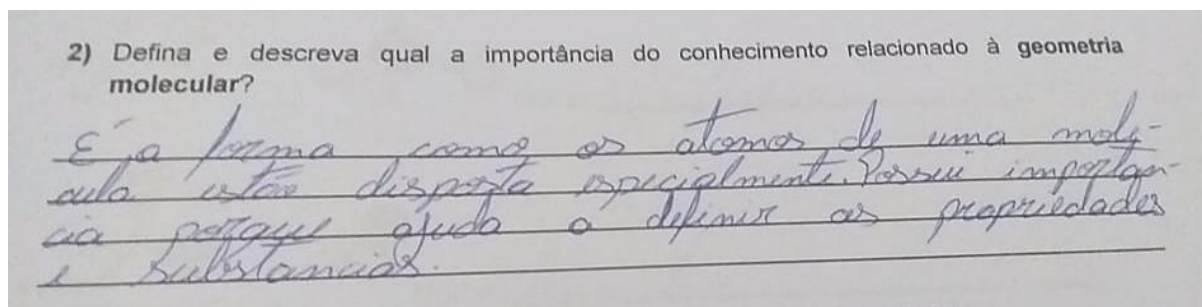 2) Defina e descreva qual a importância do conhecimento relacionado à geometria
molecular?
É a forma como os atomos de uma molé-
cula estão disposta especialmente. Possui importan-
cia porque ajuda a definir as propriedades
e substancias.